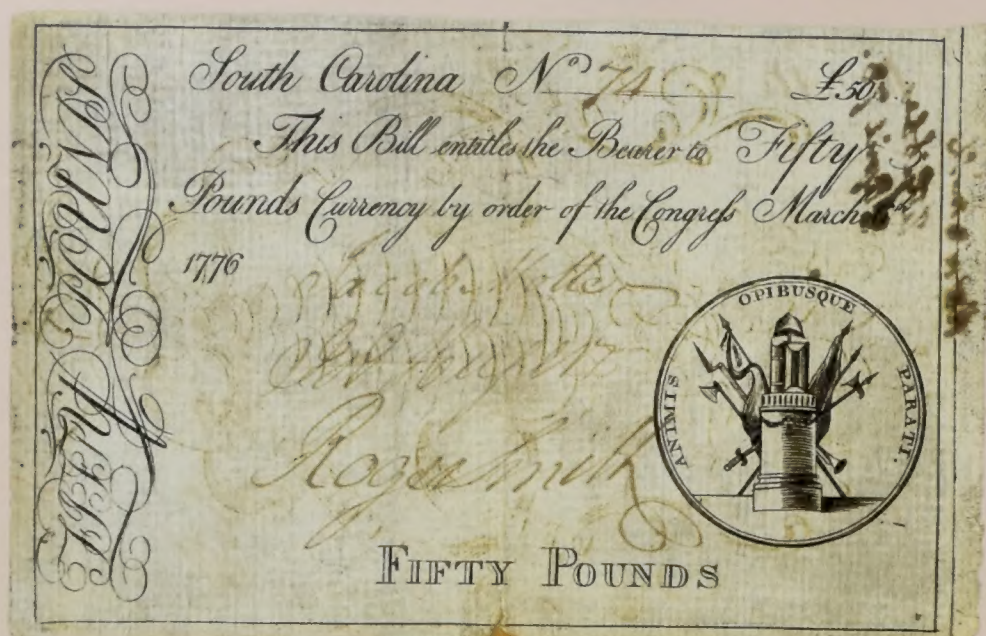 South Carolina No 74 £50
This Bill entitles the Bearer to Fifty
Pounds Currency by order of the Congreſs March
1776
Jacob
Roger Smith
ANIMIS OPIBUSQUE PARATI.
FIFTY POUNDS
FIFTY POUNDS